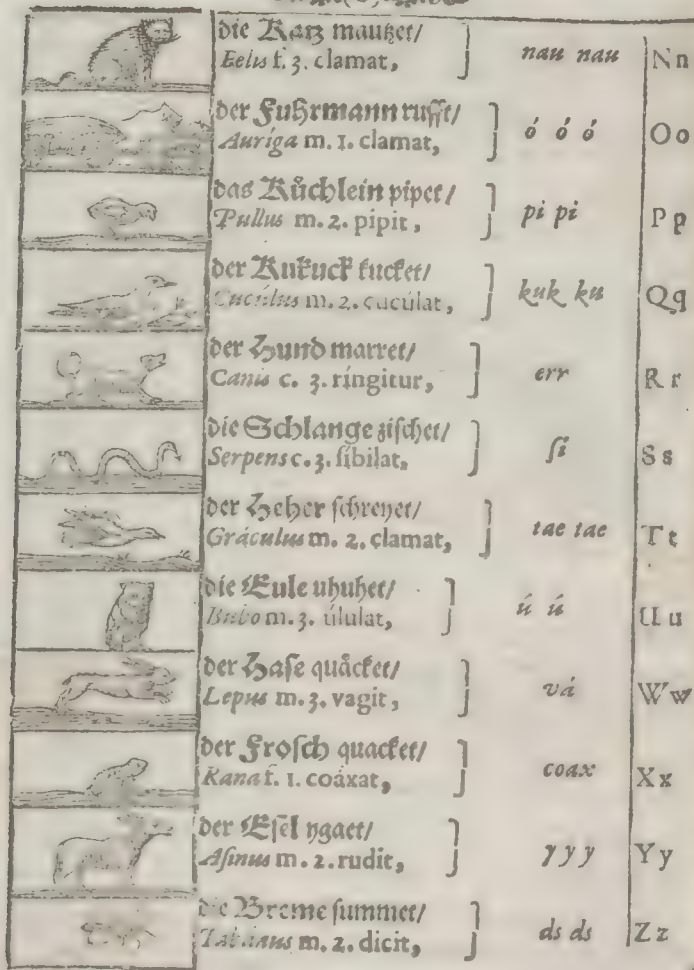 die Katz mautzet/
Eelus f. 3. clamat, nau nau Nn
der Fuhrmann rufft/
Auríga m. 1. clamat, ó ó ó Oo
das Küchlein pipet/
Pullus m. 2. pipit, pi pi Pp
der Kukuck kucket/
Cucúlus m. 2. cucúlat, kuk ku Qq
der Hund marret/
Canis c. 3. ríngitur, err Rr
die Schlange zischet/
Serpens c. 3. síbilat, si Ss
der Heher schreyet/
Gráculus m. 2. clamat, tae tae Tt
die Eule uhuhet/
Bubo m. 3. úlulat, ú ú Uu
der Hase quåcket/
Lepus m. 3. vagit, vá Ww
der Frosch quacket/
Rana f. 1. coáxat, coax Xx
der Esel ygaet/
Asinus m. 2. rudit, y y y Yy
die Breme summet/
Tabanus m. 2. dicit, ds ds Zz